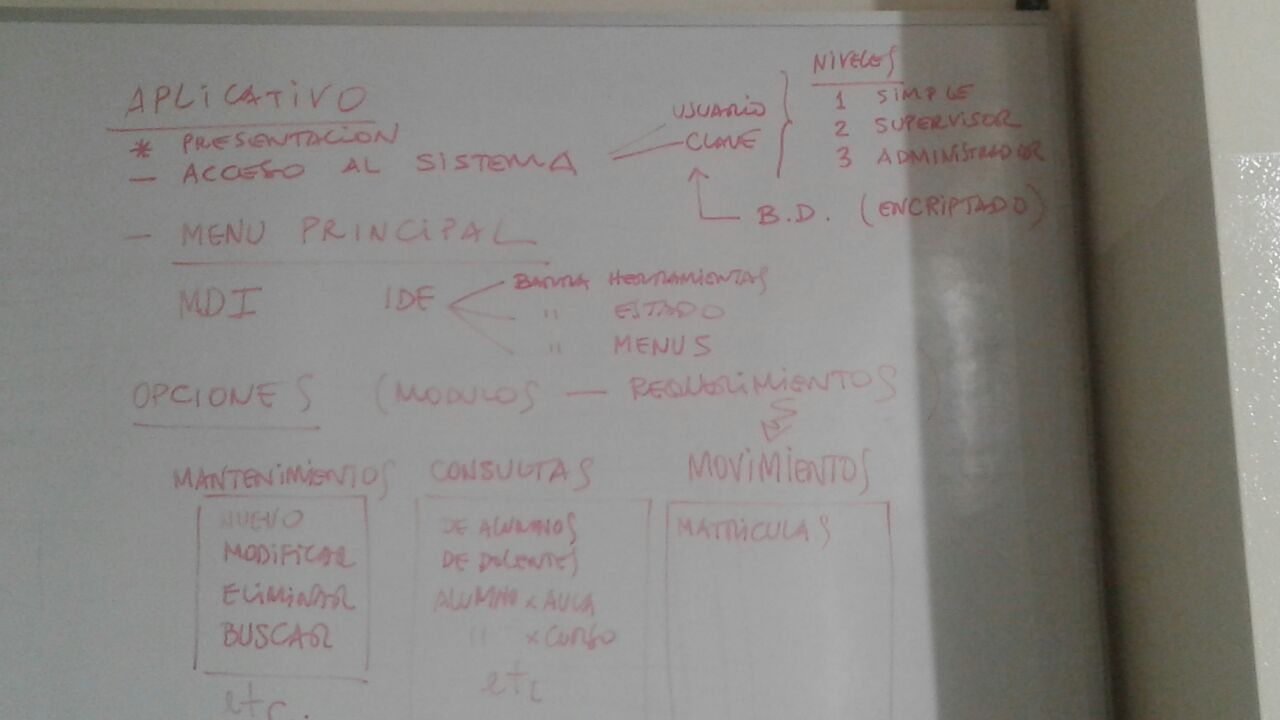 APLICATIVO
* PRESENTACION
— ACCESO AL SISTEMA
USUARIO
CLAVE
NIVELES
1 SIMPLE
2 SUPERVISOR
3 ADMINISTRADOR
B.D. (ENCRIPTADO)
— MENU PRINCIPAL
MDI IDE
BARRA HERRAMIENTAS
" ESTADO
" MENUS
OPCIONES (MODULOS — REQUERIMIENTOS)
MANTENIMIENTOS
NUEVO
MODIFICAR
ELIMINAR
BUSCAR
etc.
CONSULTAS
DE ALUMNOS
DE DOCENTES
ALUMNO x AULA
" x CURSO
etc
MOVIMIENTOS
MATRICULAS